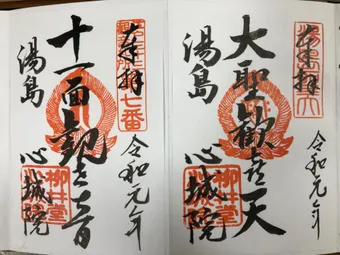 奉拝
令和元年
大聖歓喜天
湯島
心城院
柳井堂
奉拝
七番
令和元年
十一面観世音
湯島
心城院
柳井堂